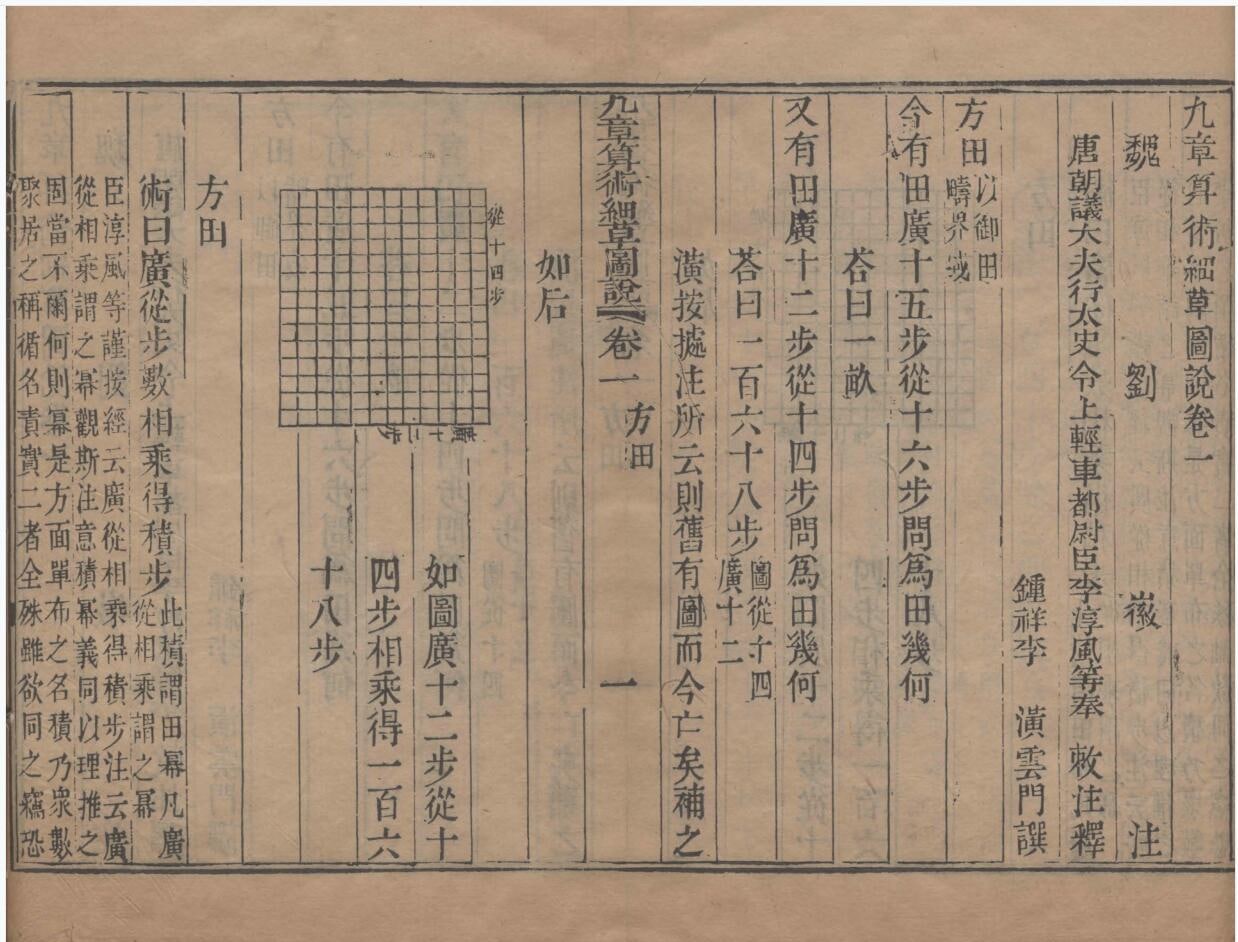 九章算術細草圖說卷一
魏　劉　徽　注
唐朝議大夫行太史令上輕車都尉臣李淳風等奉　敕注釋
鍾祥李　潢雲門譔
方田以御田
疇界域
今有田廣十五步從十六步問為田幾何
荅曰一畝
又有田廣十二步從十四步問為田幾何
荅曰一百六十八步圖從十四
廣十二
潢按據注所云則舊有圖而今亡矣補之
九章算術細草圖說卷一　方田　一
如后
從十四步
廣十二步
如圖廣十二步從十
四步相乘得一百六
十八步
方田
術曰廣從步數相乘得積步此積謂田冪凡廣
從相乘謂之冪
臣淳風等謹按經云廣從相乘得積步注云廣
從相乘謂之冪觀斯注意積冪義同以理推之
固當不爾何則冪是方面單布之名積乃眾數
聚居之稱循名責實二者全殊雖欲同之竊恐